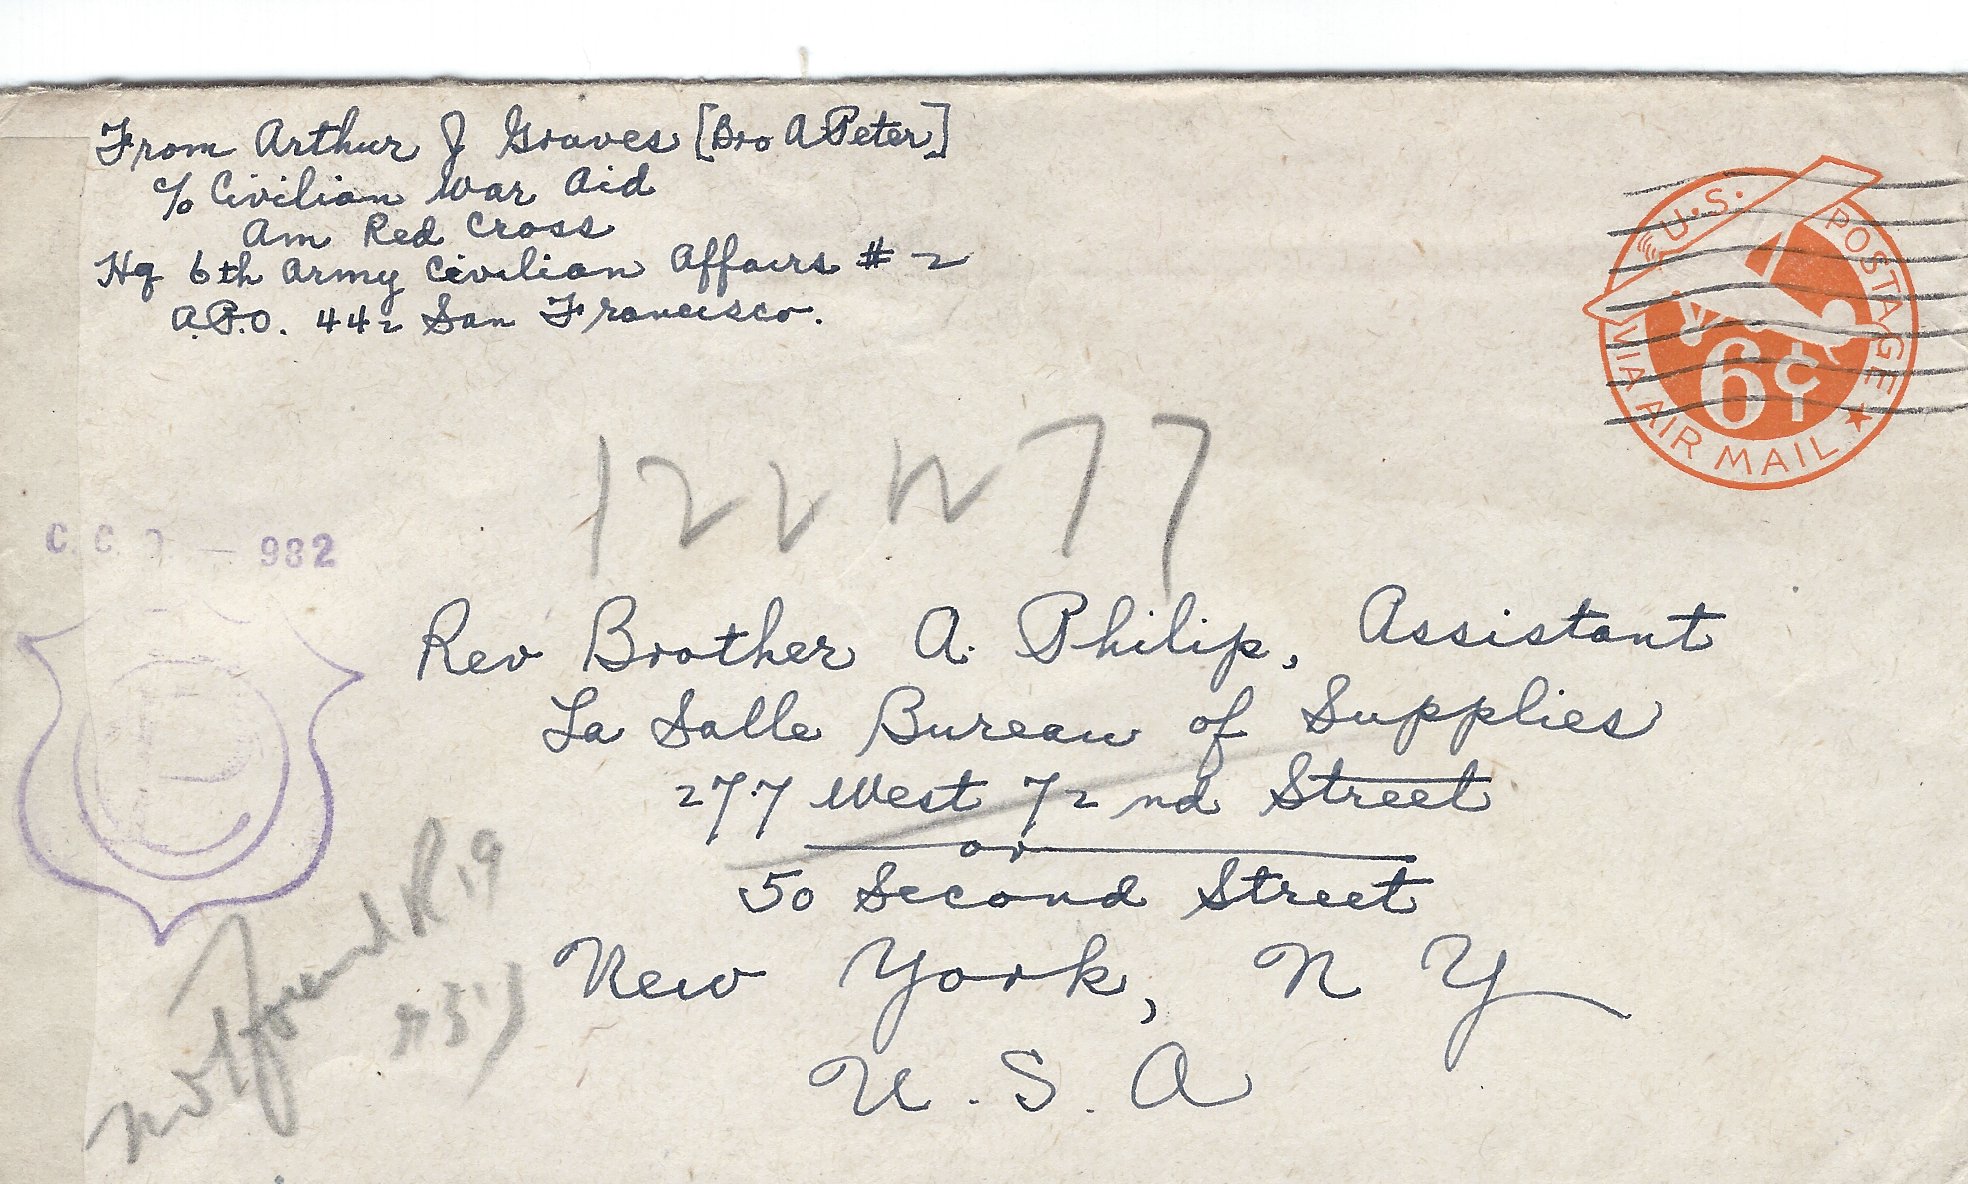 From Arthur J Graves [Bro A. Peter]
c/o Civilian War Aid
Am Red Cross
Hq 6th Army Civilian Affairs # 2
A.P.O. 442 San Francisco.
U.S. POSTAGE
6¢
VIA AIR MAIL
122 W 77
C. C. D. — 982
Rev Brother A. Philip, Assistant
La Salle Bureau of Supplies
277 West 72nd Street
or
50 Second Street
New York, N Y
U. S. A
not found R 19